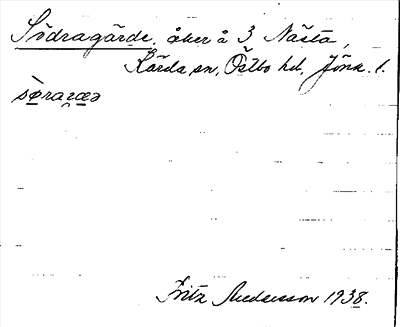 Södragärde, åker å 3 Nästa,
Kärda sn, Östbo hd, Jönk. l.
sø̀raræə
Fritz Andersson 1938.